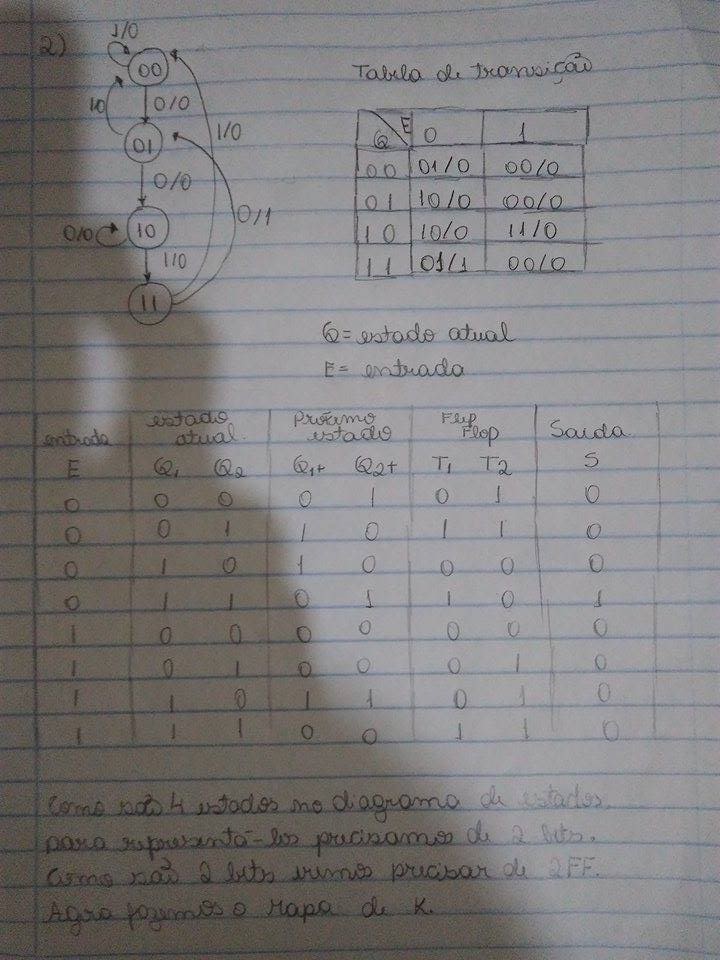 2)
1/0
00
0/0
10
1/0
01
0/0
0/1
0/0
10
1/0
11
Tabela de transição
Q E 0 1
00 01/0 00/0
01 10/0 00/0
10 10/0 11/0
11 01/1 00/0
Q = estado atual
E = entrada
entrada estado atual Próximo estado Flip Flop Saida
E Q1 Q2 Q1+ Q2+ T1 T2 S
0 0 0 0 1 0 1 0
0 0 1 1 0 1 1 0
0 1 0 1 0 0 0 0
0 1 1 0 1 1 0 1
1 0 0 0 0 0 0 0
1 0 1 0 0 0 1 0
1 1 0 1 1 0 1 0
1 1 1 0 0 1 1 0
Como são 4 estados no diagrama de estados
para representá-los precisamos de 2 bits.
Como são 2 bits iremos precisar de 2FF.
Agra fazemos o mapa de K.